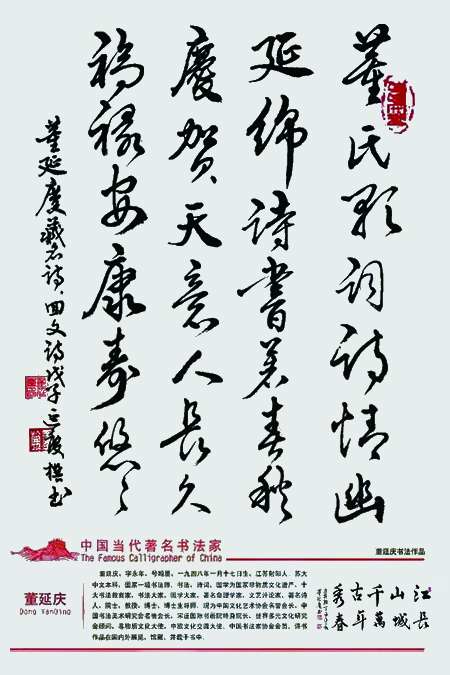 董氏歌詞詩情幽
延綿詩書著春秋
慶賀天意人長久
福祿安康壽悠々
董延慶藏名詩、回文詩戊子延慶撰书
中国当代著名书法家
The Famous Calligrapher of China
董延庆书法作品
董延庆
Dong YanQing
董延庆，字永年，号，一九四八年一月十七日生，江苏射阳人，苏大
中文本科，国家一级书法师，书法、诗词、国学为国家非物质文化遗产，十
大书法教育家，书法大家，国学大家，著名命理学家，文艺评论家，著名诗
人，院士，教授，博士，博士生导师，现为中国文化艺术协会名誉会长，中
国书法美术研究会名誉会长，国际书画院终身院长，世界多元文化研究
会顾问，非物质文化大使，中欧文化交流大使，中国书法家协会会员，诗书
作品在国内外展览、馆藏、于书中。
江長
山城
千萬
古年
秀春